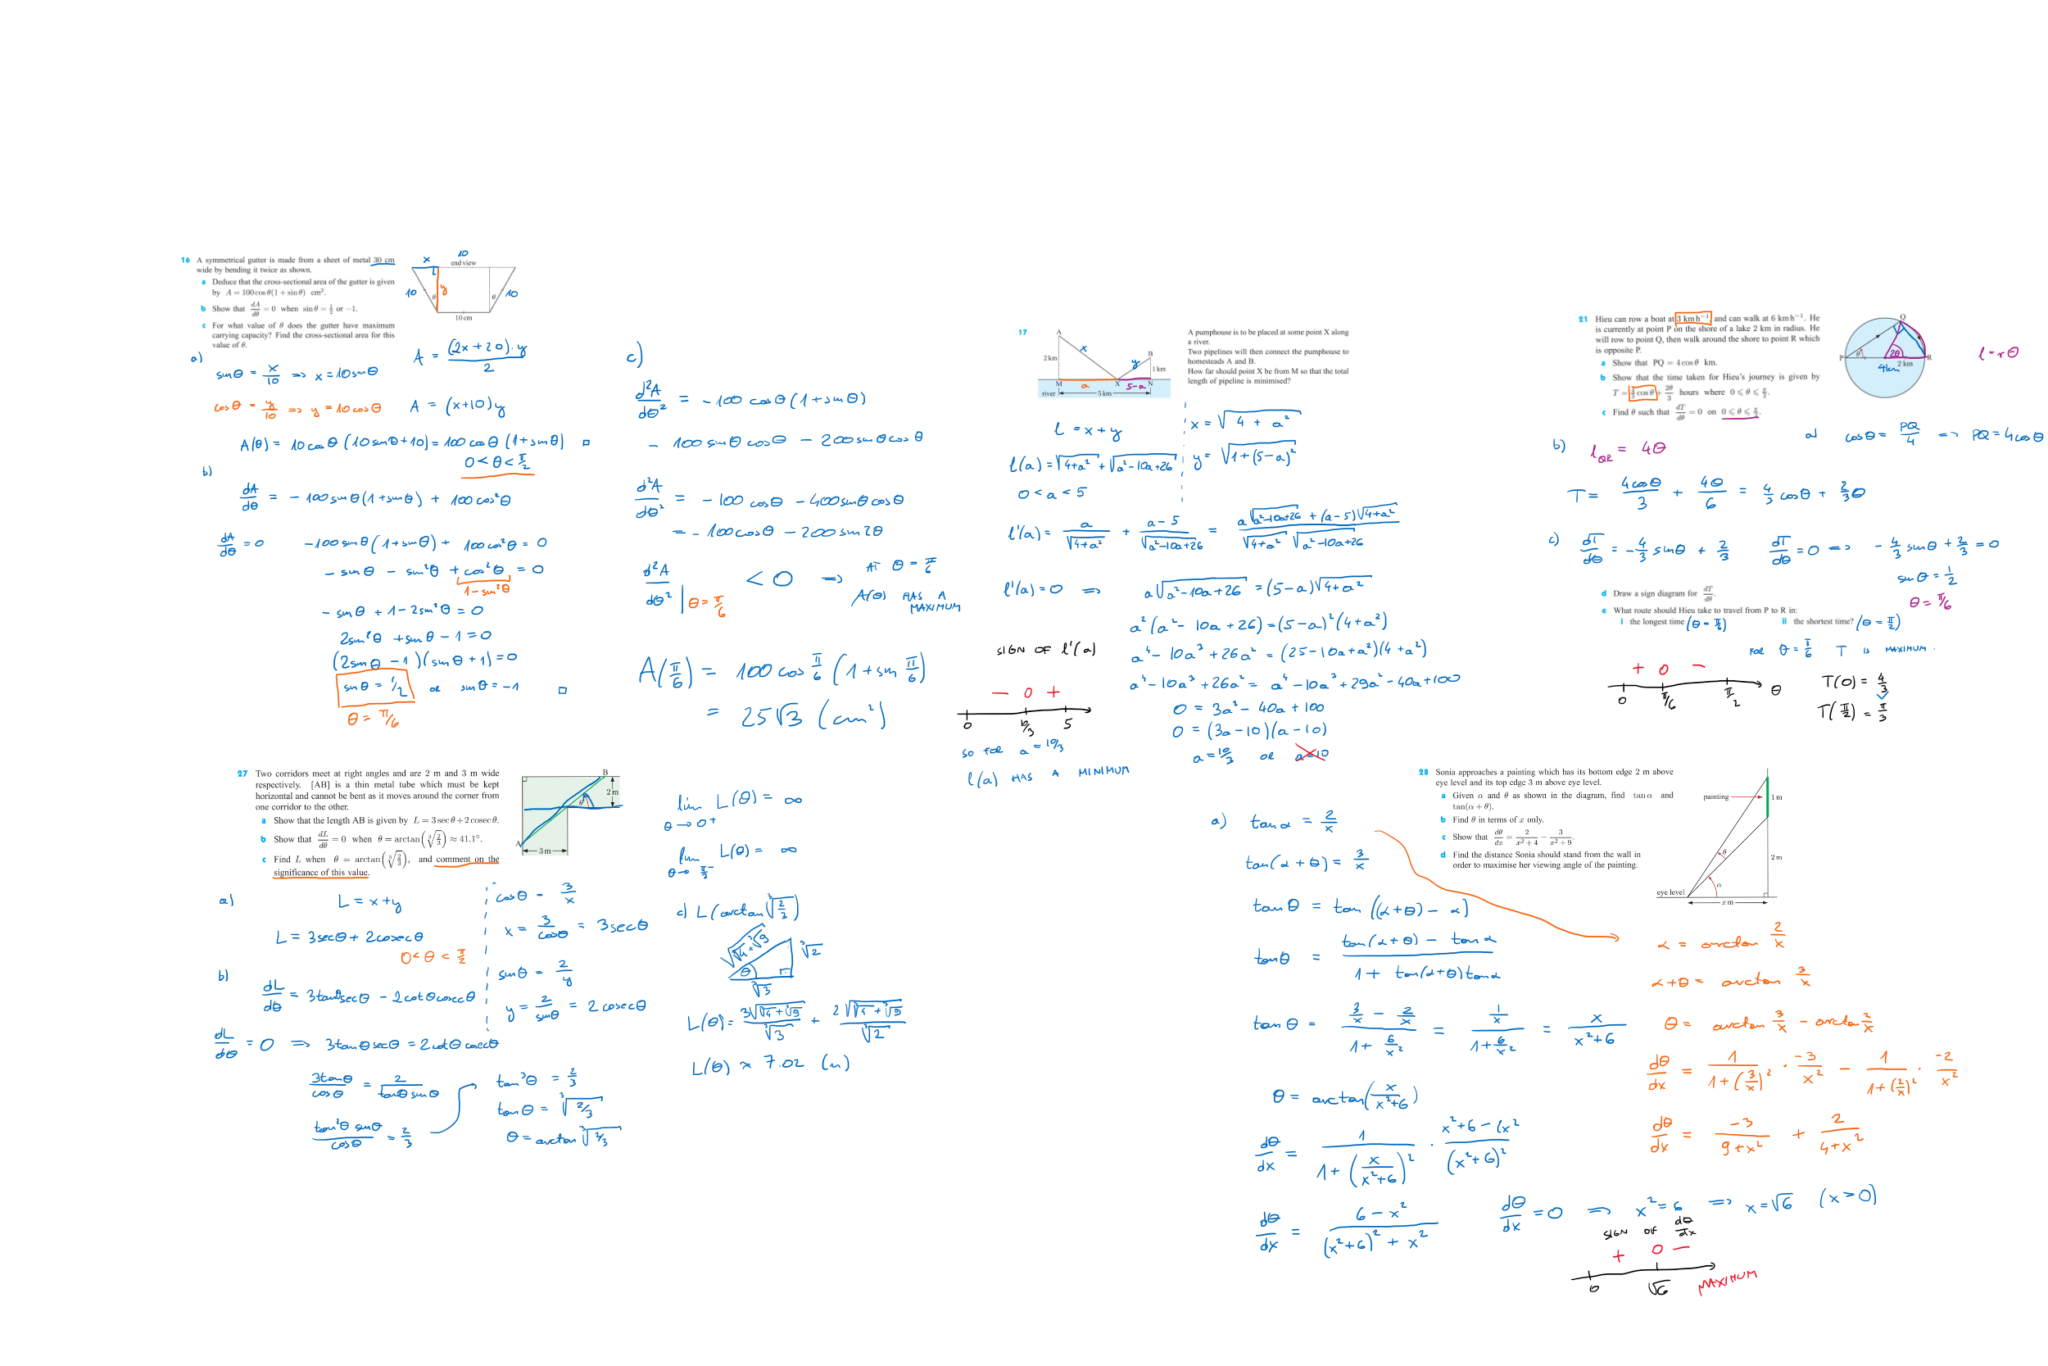 16 A symmetrical gutter is made from a sheet of metal 30 cm
wide by bending it twice as shown.
a Deduce that the cross-sectional area of the gutter is given
by A = 100 cos θ(1 + sin θ) cm².
b Show that dA/dθ = 0 when sin θ = 1/2 or −1.
c For what value of θ does the gutter have maximum
carrying capacity? Find the cross-sectional area for this
value of θ.
x 10
end view
10 θ y θ 10
10 cm
a)
sinθ = x/10 => x = 10sinθ
cosθ = y/10 => y = 10cosθ
A = (2x+20)·y/2
A = (x+10)y
A(θ) = 10cosθ(10sinθ+10) = 100cosθ(1+sinθ) □
0 < θ < π/2
b)
dA/dθ = -100sinθ(1+sinθ) + 100cos²θ
dA/dθ = 0 -100sinθ(1+sinθ) + 100cos²θ = 0
-sinθ - sin²θ + cos²θ = 0
1-sin²θ
-sinθ + 1 - 2sin²θ = 0
2sin²θ + sinθ - 1 = 0
(2sinθ - 1)(sinθ + 1) = 0
sinθ = 1/2 or sinθ = -1 □
θ = π/6
c)
d²A/dθ² = -100cosθ(1+sinθ)
- 100sinθcosθ - 200sinθcosθ
d²A/dθ² = -100cosθ - 400sinθcosθ
= -100cosθ - 200sin2θ
d²A/dθ² | θ=π/6 < 0 => AT θ = π/6
A(θ) HAS A
MAXIMUM
A(π/6) = 100cos π/6 (1+sin π/6)
= 25√3 (cm²)
17
A
x
2 km
y
B
1 km
M a X 5-a N
river 5 km
A pumphouse is to be placed at some point X along
a river.
Two pipelines will then connect the pumphouse to
homesteads A and B.
How far should point X be from M so that the total
length of pipeline is minimised?
l = x+y
x = √(4 + a²)
l(a) = √(4+a²) + √(a²-10a+26)
y = √(1+(5-a)²)
0 < a < 5
l'(a) = a/√(4+a²) + (a-5)/√(a²-10a+26) = (a√(a²-10a+26) + (a-5)√(4+a²))/(√(4+a²) √(a²-10a+26))
l'(a) = 0 => a√(a²-10a+26) = (5-a)√(4+a²)
a²(a²-10a+26) = (5-a)²(4+a²)
a⁴-10a³+26a² = (25-10a+a²)(4+a²)
a⁴-10a³+26a² = a⁴-10a³+29a²-40a+100
0 = 3a²-40a+100
0 = (3a-10)(a-10)
a = 10/3 or a=10
SIGN OF l'(a)
- 0 +
0 10/3 5
SO FOR a = 10/3
l(a) HAS A MINIMUM
21 Hieu can row a boat at 3 km h⁻¹ and can walk at 6 km h⁻¹. He
is currently at point P on the shore of a lake 2 km in radius. He
will row to point Q, then walk around the shore to point R which
is opposite P.
a Show that PQ = 4 cos θ km.
b Show that the time taken for Hieu's journey is given by
T = 4/3 cos θ + 2θ/3 hours where 0 ⩽ θ ⩽ π/2.
c Find θ such that dT/dθ = 0 on 0 ⩽ θ ⩽ π/2.
Q
P θ 2θ R
2 km
4km
l = rθ
a) cosθ = PQ/4 => PQ = 4cosθ
b) l QR = 4θ
T = 4cosθ/3 + 4θ/6 = 4/3 cosθ + 2/3 θ
c) dT/dθ = -4/3 sinθ + 2/3 dT/dθ = 0 => -4/3 sinθ + 2/3 = 0
sinθ = 1/2
θ = π/6
d Draw a sign diagram for dT/dθ.
e What route should Hieu take to travel from P to R in:
i the longest time (θ = π/6) ii the shortest time? (θ = π/2)
FOR θ = π/6 T IS MAXIMUM.
+ 0 -
0 π/6 π/2 θ
T(0) = 4/3
T(π/2) = π/3
27 Two corridors meet at right angles and are 2 m and 3 m wide
respectively. [AB] is a thin metal tube which must be kept
horizontal and cannot be bent as it moves around the corner from
one corridor to the other.
a Show that the length AB is given by L = 3 sec θ + 2 cosec θ.
b Show that dL/dθ = 0 when θ = arctan(∛(2/3)) ≈ 41.1°.
c Find L when θ = arctan(∛(2/3)), and comment on the
significance of this value.
B
θ
2 m
A
3 m
a) L = x+y
L = 3secθ + 2cosecθ
0 < θ < π/2
cosθ = 3/x
x = 3/cosθ = 3secθ
sinθ = 2/y
y = 2/sinθ = 2cosecθ
b)
dL/dθ = 3tanθsecθ - 2cotθcosecθ
dL/dθ = 0 => 3tanθsecθ = 2cotθcosecθ
3tanθ/cosθ = 2/(tanθsinθ)
tan²θ sinθ/cosθ = 2/3
tan³θ = 2/3
tanθ = ∛(2/3)
θ = arctan ∛(2/3)
lim L(θ) = ∞
θ→0⁺
lim L(θ) = ∞
θ→π/2⁻
c) L(arctan ∛(2/3))
√(∛4+∛9) ∛2
θ
∛3
L(θ) = 3√(∛4+∛9)/∛3 + 2√(∛4+∛9)/∛2
L(θ) ≈ 7.02 (m)
28 Sonia approaches a painting which has its bottom edge 2 m above
eye level and its top edge 3 m above eye level.
a Given α and θ as shown in the diagram, find tan α and
tan(α + θ).
b Find θ in terms of x only.
c Show that dθ/dx = 2/(x²+4) − 3/(x²+9).
d Find the distance Sonia should stand from the wall in
order to maximise her viewing angle of the painting.
painting
1 m
θ
2 m
α
eye level
x m
a) tanα = 2/x
tan(α+θ) = 3/x
tanθ = tan((α+θ) - α)
tanθ = (tan(α+θ) - tanα)/(1 + tan(α+θ)tanα)
tanθ = (3/x - 2/x)/(1 + 6/x²) = (1/x)/(1+6/x²) = x/(x²+6)
θ = arctan(x/(x²+6))
dθ/dx = 1/(1+(x/(x²+6))²) · (x²+6-(x²/(x²+6)²
dθ/dx = (6-x²)/((x²+6)² + x²)
α = arctan 2/x
α+θ = arctan 3/x
θ = arctan 3/x - arctan 2/x
dθ/dx = 1/(1+(3/x)²) · -3/x² - 1/(1+(2/x)²) · -2/x²
dθ/dx = -3/(9+x²) + 2/(4+x²)
dθ/dx = 0 => x² = 6 => x = √6 (x>0)
SIGN OF dθ/dx
+ 0 -
0 √6 MAXIMUM